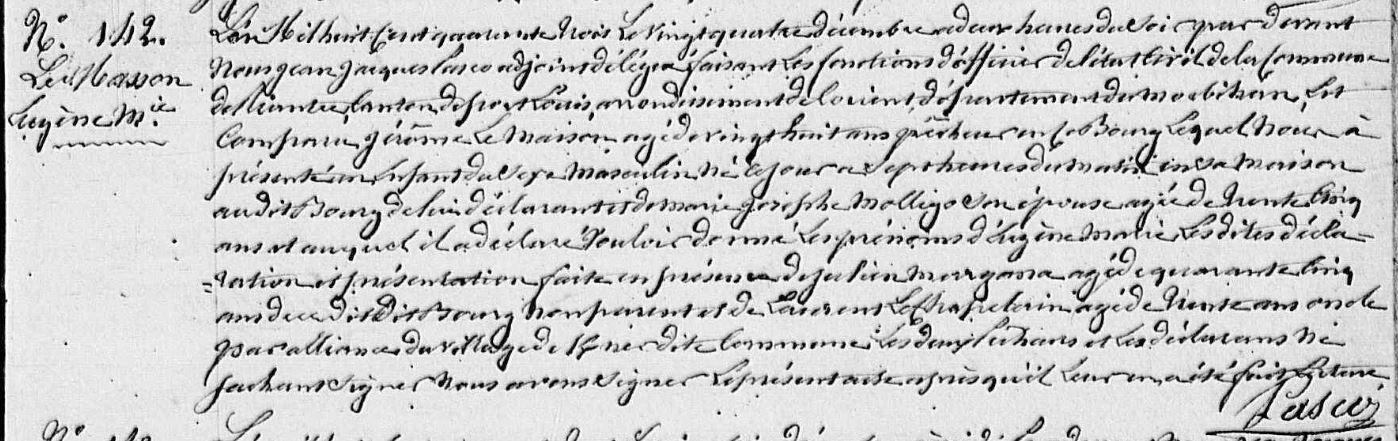 N.° 142.
Le Masson
Eugène M.ie
L'an Mil huit Cent quarante trois Le Vingt quatre décembre a deux heures du Soir par devant
Nous jean jacques adjoint délégué faisant Les fonctions d'officier de l'état Civil de la Commune
de Riantec, Canton de port Louis, arrondissement de Lorient, département du morbihan, Est
Comparu jérôme Le Masson agé de vingt huit ans pêcheur en ce Bourg Lequel Nous à
présenté un Enfant du Sexe Masculin Né ce jour a Sept heures du matin en Sa Maison
au dit Bourg de lui déclarant et de marie josèphe Molligo Son épouse agée de trente Cinq
ans et auquel il a déclaré Vouloir donné Les prénoms d'Eugène Marie Les dites décla-
=ration et présentation faite en présence de julien agé de quarante Cinq
ans de ce dit Bourg Non parent et de Laurent Le Chapelain agé de trente ans oncle
par alliance du village de dite Commune, Les deux témoins et Les déclarans Ne
sachant Signer Nous avons Signer Le présent acte après qu'il Leur en a été fait Lecture
N.°